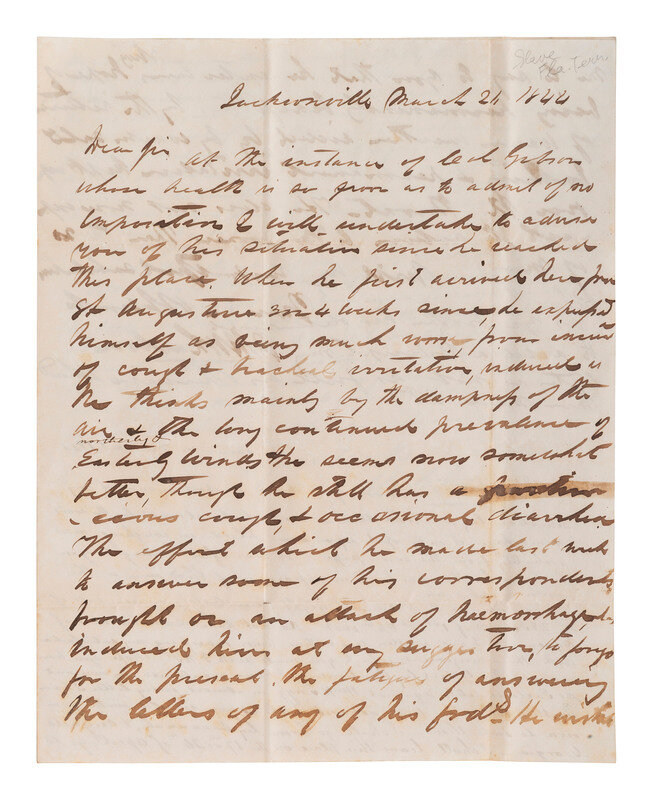 Slave
Fla. Terr.
Jacksonville March 21 1844
Dear Sir At the instance of Col Gibson
whose health is so poor as to admit of no
Imposition I will undertake to advise
you of his situation since he reached
this place. When he first arrived here from
St Augustine 3 or 4 weeks since, he expressd
himself as being much worse from
of cough & tracheal irritation, induced as
he thinks mainly by the dampness of the
air & the long continued prevalence of
northerly &
Easterly winds he seems now somewhat
better, though he still has a
cough, & occasional diarrhea
The effort which he made last week
to answer some of his correspondents
brought on an attack of haemorrhage &
induced him at my suggestion, to forego
for the present, the fatigue of answering
the letters of any of his frds. He wishes